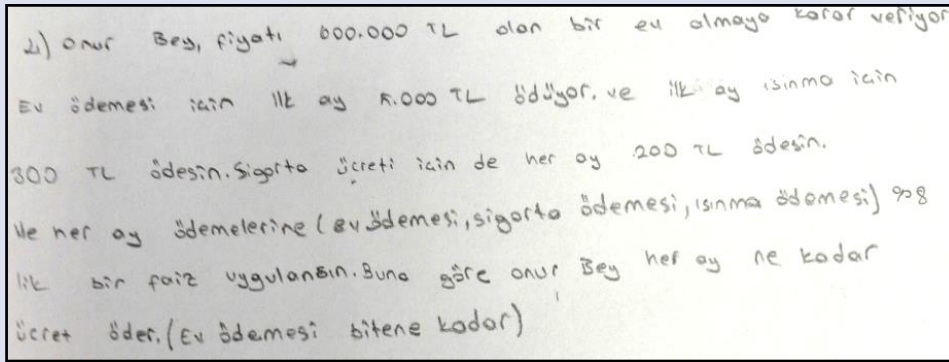 2) Onur Bey, fiyatı 600.000 TL olan bir ev almaya karar veriyor
Ev ödemesi için ilk ay 5.000 TL ödüyor. ve ilk ay ısınma için
300 TL ödesin. Sigorta ücreti için de her ay 200 TL ödesin.
Ve her ay ödemelerine (ev ödemesi, sigorta ödemesi, ısınma ödemesi) %8
lik bir faiz uygulansın. Buna göre onur Bey her ay ne kadar
ücret öder. (Ev ödemesi bitene kadar)